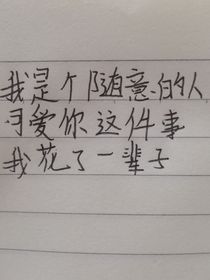 我是个随意的人
可爱你这件事
我花了一辈子